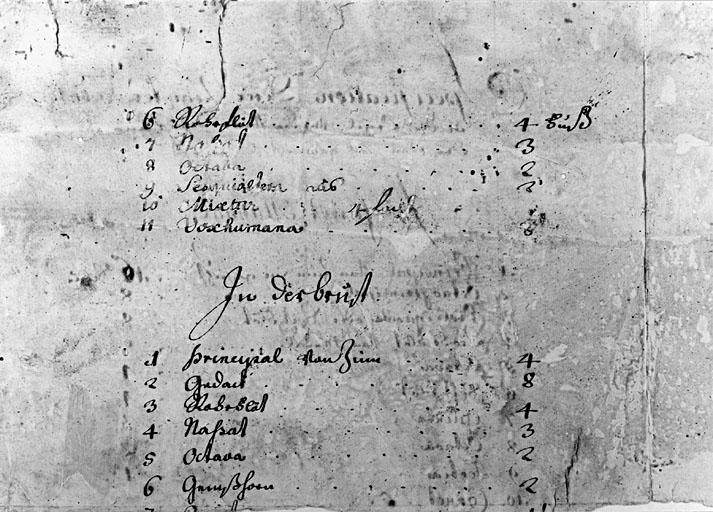 6 Rohrflöt 4 Fuß
7 Naßat 3
8 Octava 2
9 Sesquialtera aus 2
10 Mixtur 4 fach
11 Voxhumana 8
In der brust
1 Principal von Zinn 4
2 Gedact 8
3 Rohrflöt 4
4 Naßat 3
5 Octava 2
6 Gemßhorn 2
7